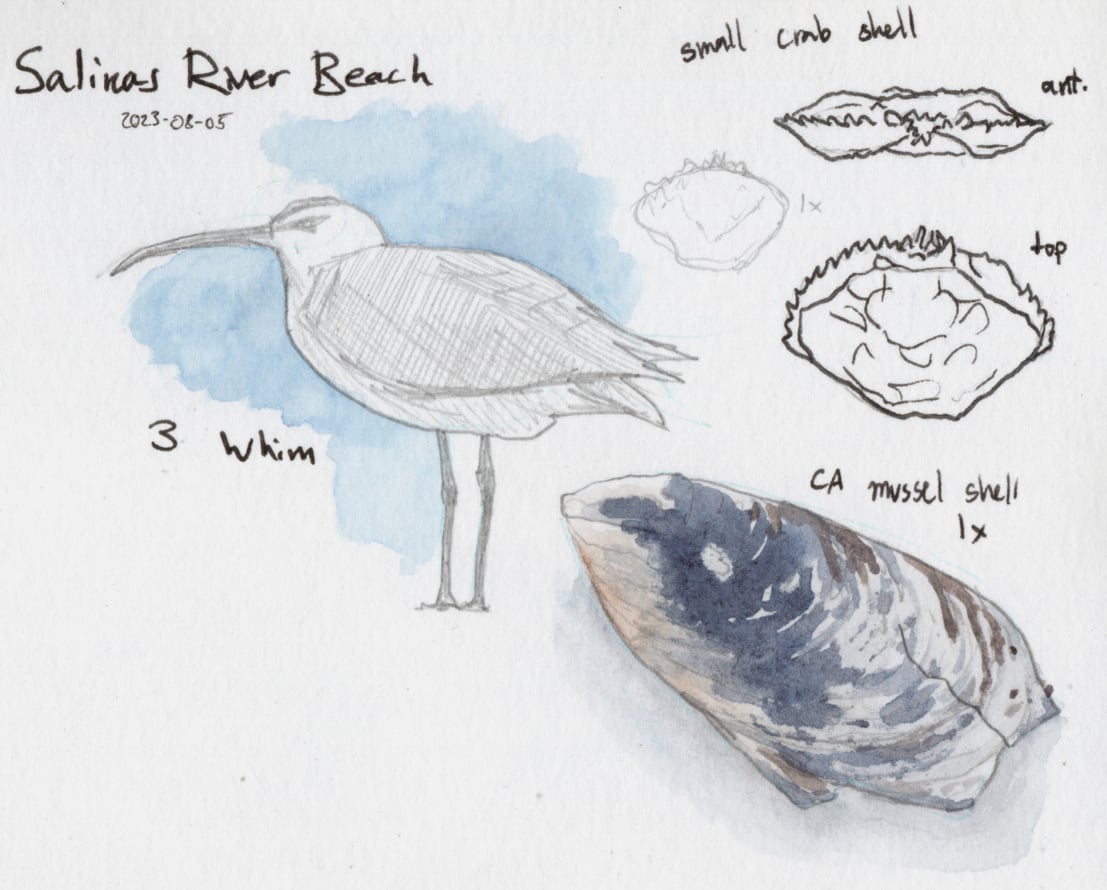 Salinas River Beach
2023-08-05
small crab shell
ant.
1x
top
3 Whim
CA mussel shell
1x